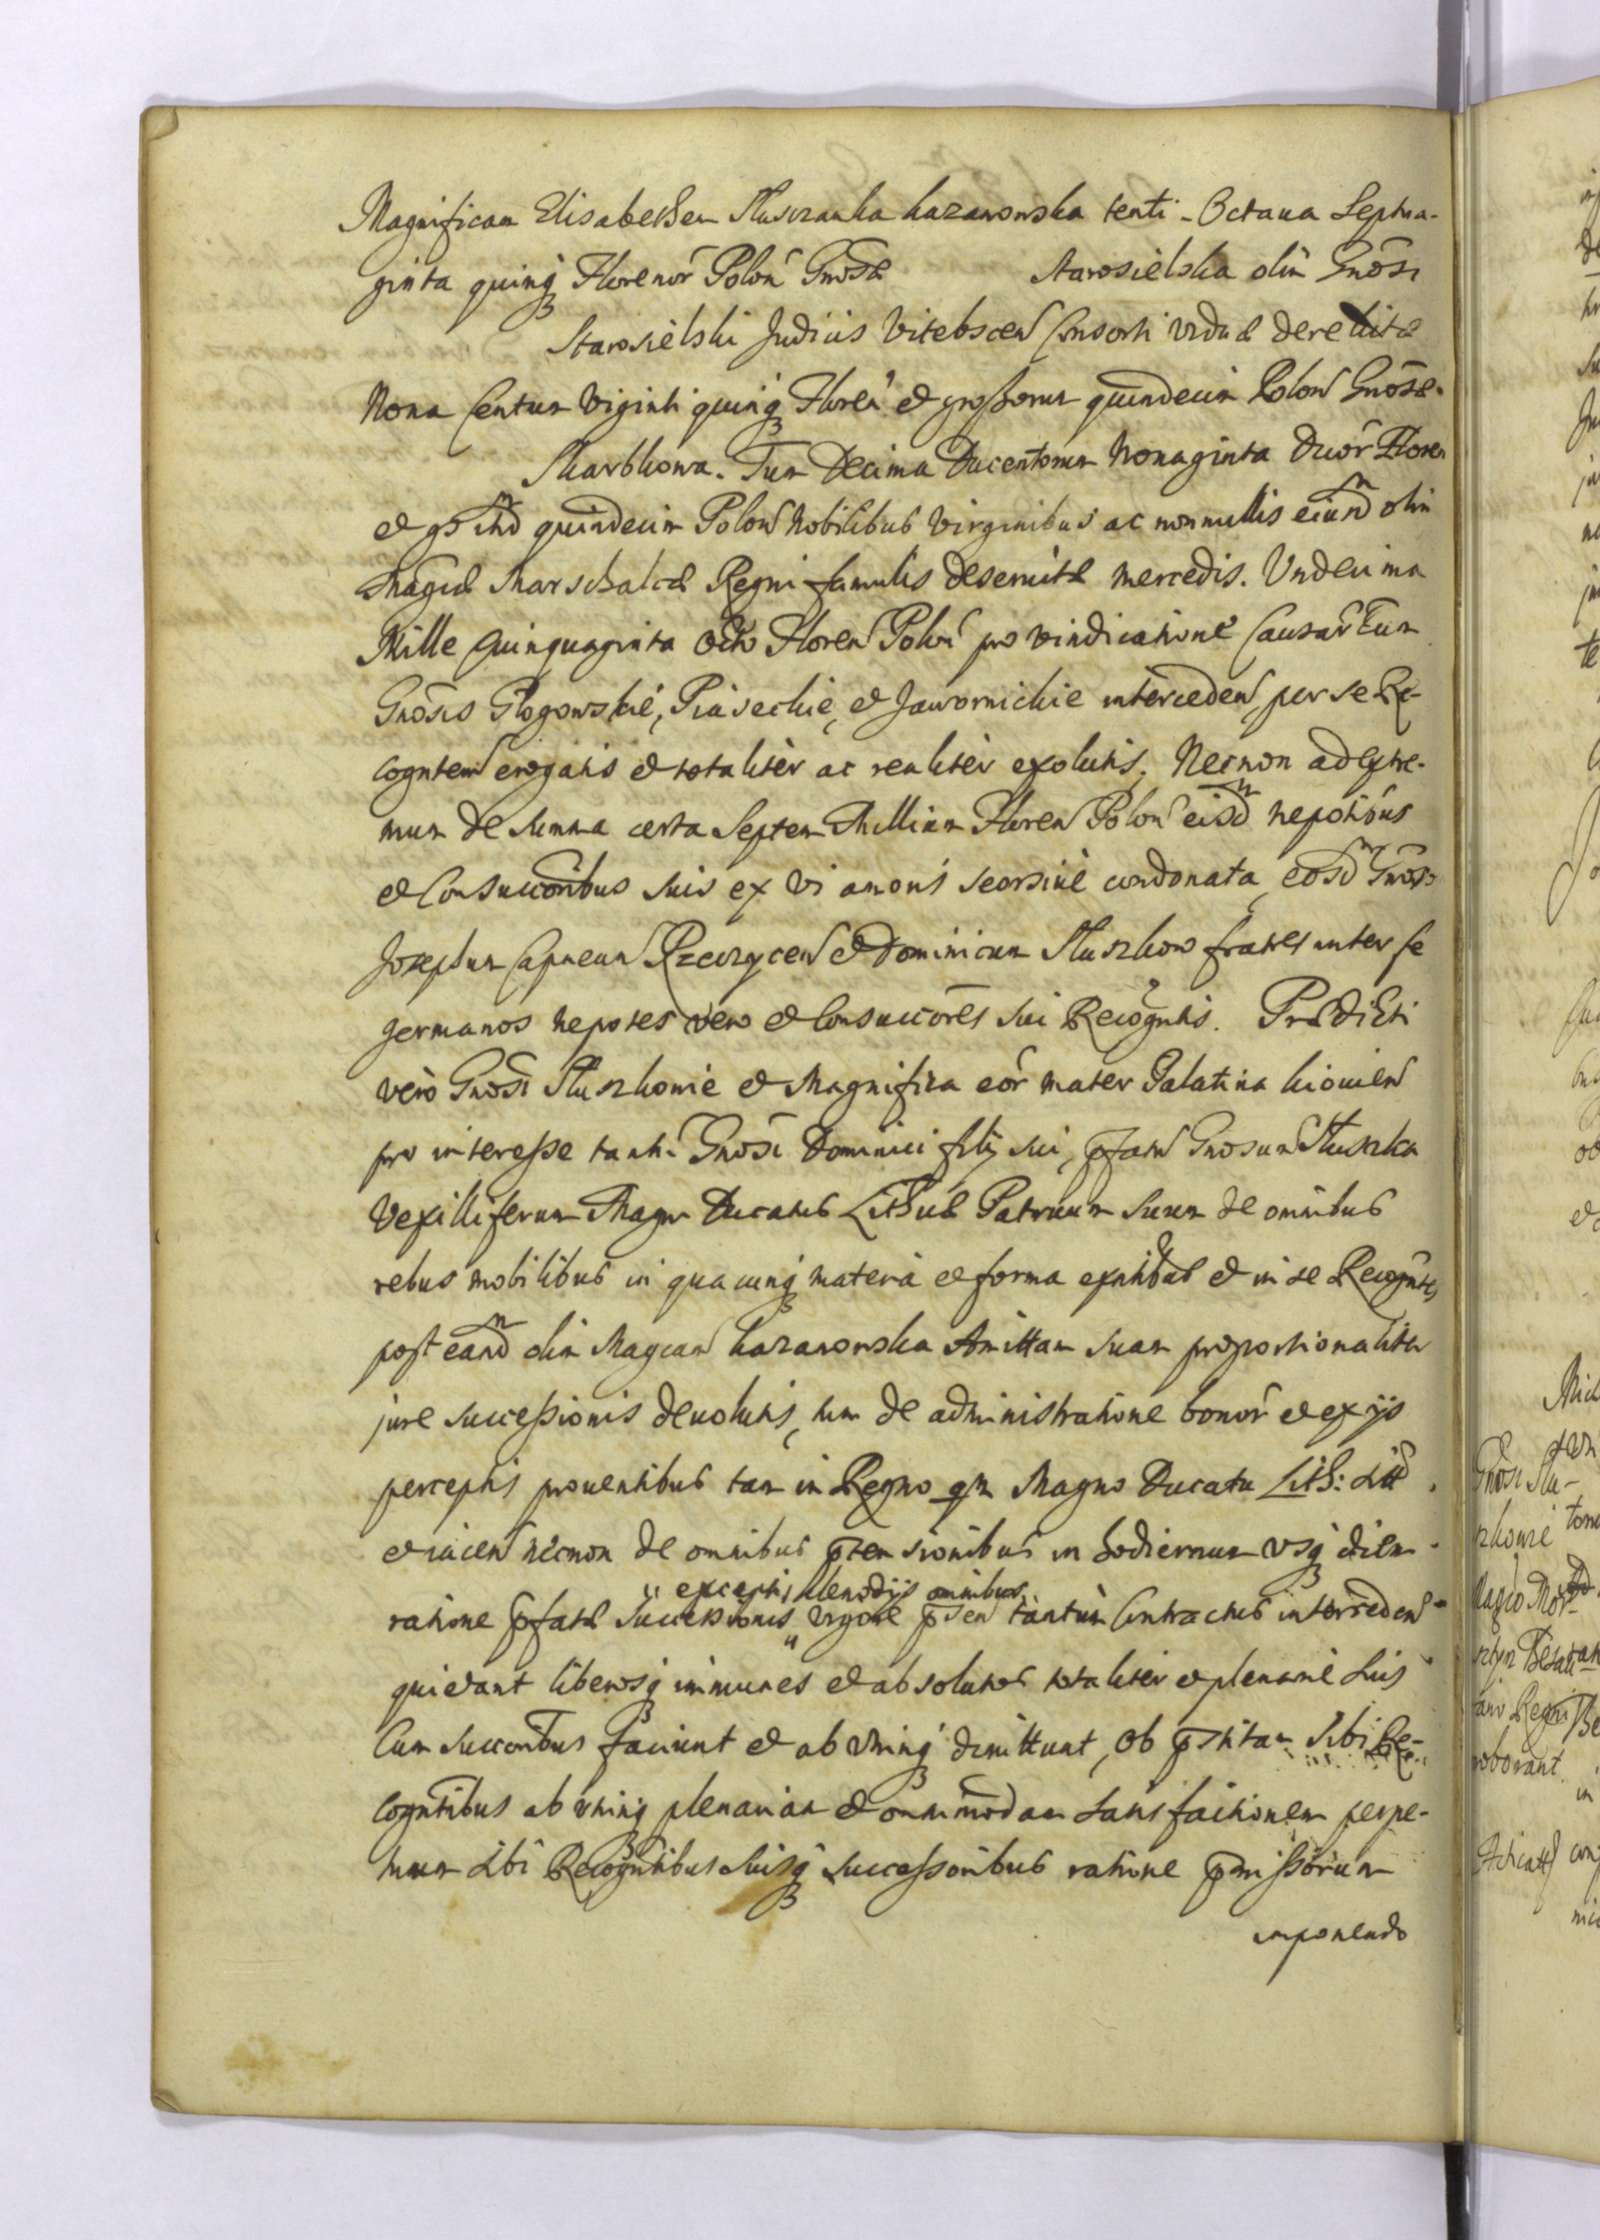 Magnificam Elisabetham Słuszanka Kazanowska tenti. Octaua Septua-
ginta quinq Florenor Polon Gnosæ Starosielska olim Gnosi
Starosielski Judicis Vitebscen Consorti viduæ derelictæ
Nona Centum Viginti quinq Floren et grossorum quindecim Polon Gnosæ
Skarbkowa. Tum Decima Ducentorum Nonaginta Duor Floren
et quindecim Polon Nobilibus Virginibus ac nonnullis eiusd olim
Magcæ Marschalcæ Regni famulis deseruitæ mercedis. Vndecima
Mille Quinquaginta Octo Floren Polon pro vindicatione Causar Cum
Gnosis Głogowskie, Piaseckie, et Jawornickie interceden, per se Re-
cognten erogatis et totaliter ac realiter exolutis. Necnon ad extre-
mum de Summa certa Septem Millium Floren Polon eisd nepotibus
et Consuccoribus suis ex vi amoris seorsiue condonata, eosd Gnosos
Josephum Capneum Rzeczycen et Dominicum Słuszkow fratres inter se
germanos nepotes vero et Consuccores sui Recogntis. Prædicti
vero Gnosi Słuszkowie et Magnifica eor mater Palatina Kiouien
pro interesse tanti Gnosi Dominici filij sui, pfatum Gnosum Słuszka
Vexilliferum Magni Ducatus Lithuæ Patruum suum de omnibus
rebus mobilibus in quacunq materia et forma exntibus et in se Recognten
post eand olim Magcam Kazanowska Amittam suam proportionaliter
jure successionis deuolutis, tum de administratione bonor et ex ijs
perceptis prouentibus tam in Regno qm Magno Ducatu Lith: sitt
et iacen necnon de omnibus ptensionibus in hodiernum vsq diem
" exceptis klenodijs omnibus
ratione pfatæ Successionis " vigore psen tantum Contractus interceden
quietant liberosq immunes et absolutos totaliter et plenarie suis
Cum Succoribus faciunt et ab vtrinq dimittunt, ob pstitam sibi Re-
cogntibus ab vtrinq plenariam et omnimodam satisfactionem perpe-
tuum sibi Recogntibus suisq successoribus ratione pmissorum
imponendo